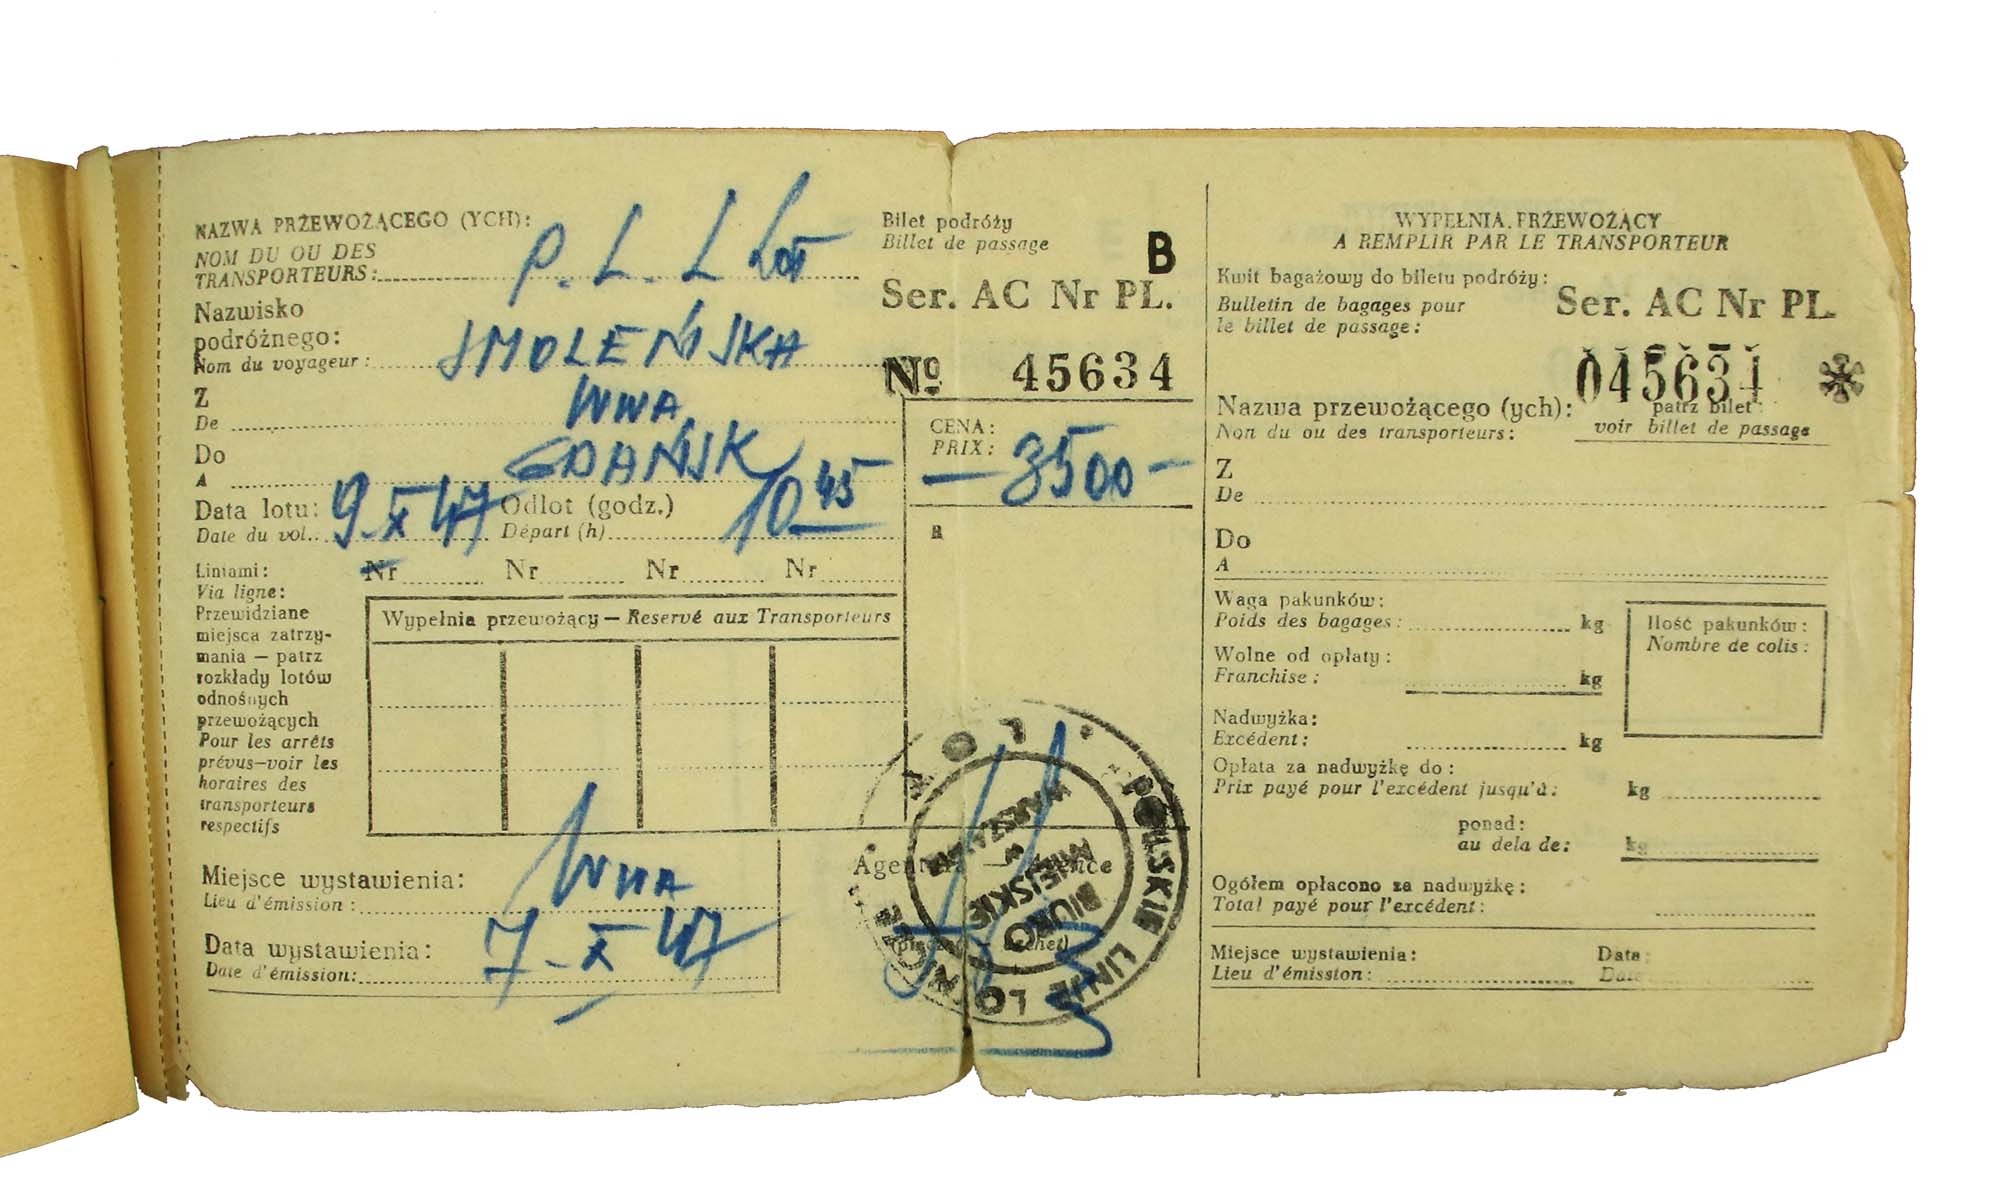 NAZWA PRZEWOŻĄCEGO (YCH):
NOM DU OU DES
TRANSPORTEURS: P.L.L Lot
Nazwisko
podróżnego:
Nom du voyageur: SMOLEŃSKA
Z
De WWA
Do
A GDAŃSK
Data lotu: 9-X 47 Odlot (godz.) 10 45
Date du vol. Départ (h)
Liniami: Nr Nr Nr Nr
Via ligne:
Przewidziane
miejsca zatrzy-
mania — patrz
rozkłady lotów
odnośnych
przewożących
Pour les arrêts
prévus—voir les
horaires des
transporteurs
respectifs
Wypełnia przewożący — Reservé aux Transporteurs
Miejsce wystawienia: WWA
Lieu d'émission:
Data wystawienia: 7-X 47
Date d'émission:
Bilet podróży
Billet de passage
B
Ser. AC Nr PL.
No 45634
CENA:
PRIX: — 3500 —
POLSKIE LINJE LOTNICZE LOT
BIURO
MIEJSKIE
w
WARSZAWIE
WYPEŁNIA PRZEWOŻĄCY
A REMPLIR PAR LE TRANSPORTEUR
Kwit bagażowy do biletu podróży:
Bulletin de bagages pour
le billet de passage:
Ser. AC Nr PL
045634
Nazwa przewożącego (ych): patrz bilet
Non du ou des transporteurs: voir billet de passage
Z
De
Do
A
Waga pakunków:
Poids des bagages: kg
Ilość pakunków:
Nombre de colis:
Wolne od opłaty:
Franchise: kg
Nadwyżka:
Excédent: kg
Opłata za nadwyżkę do:
Prix payé pour l'excédent jusqu'à: kg
ponad:
au dela de: kg
Ogółem opłacono za nadwyżkę:
Total payé pour l'excédent:
Miejsce wystawienia: Data:
Lieu d'émission: Date